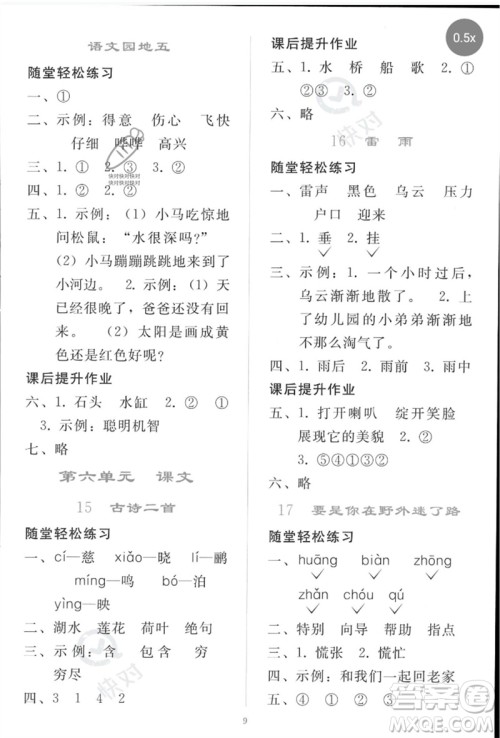 语文园地五
随堂轻松练习
一、①
二、示例：得意 伤心 飞快
仔细 哗哗 高兴
三、① ② ③ ②
四、1. ② 2. ①
五、1. 示例：（1）小马吃惊地
问松鼠：“水很深吗？”
（2）小马蹦蹦跳跳地来到了
小河边。 2. 示例：（1）天
已经很晚了，爸爸还没有
回来。 （2）太阳是画成黄
色还是红色好呢？
课后提升作业
六、1. 石头 水缸 2. ② ①
3. 示例：聪明机智
七、略
第六单元 课文
15 古诗二首
随堂轻松练习
一、cí—慈 xiǎo—晓 lí—鹂
míng—鸣 bó—泊
yìng—映
二、湖水 莲花 荷叶 绝句
三、示例：含 包含 穷
穷尽
四、3 1 4 2
9
课后提升作业
五、1. 水 桥 船 歌 2. ①
②③ 3. ②
六、略
16 雷 雨
随堂轻松练习
一、雷声 黑色 乌云 压力
户口 迎来
二、1. 垂 2. 挂
三、示例：1. 一个小时过后，
乌云渐渐地散了。 2. 上
了幼儿园的小弟弟渐渐地
不那么淘气了。
四、1. 雨后 2. 雨前 3. 雨中
课后提升作业
五、1. 打开喇叭 绽开笑脸
2. 示例：展现它的美貌
3. ⑤④①②③
六、略
17 要是你在野外迷了路
随堂轻松练习
一、huāng biàn zhōng
zhǎn chóu qú
二、特别 向导 帮助 指点
三、1. 慌张 2. 慌忙
四、示例：和我们一起回老家
五、④ ① ② ③
0.5x